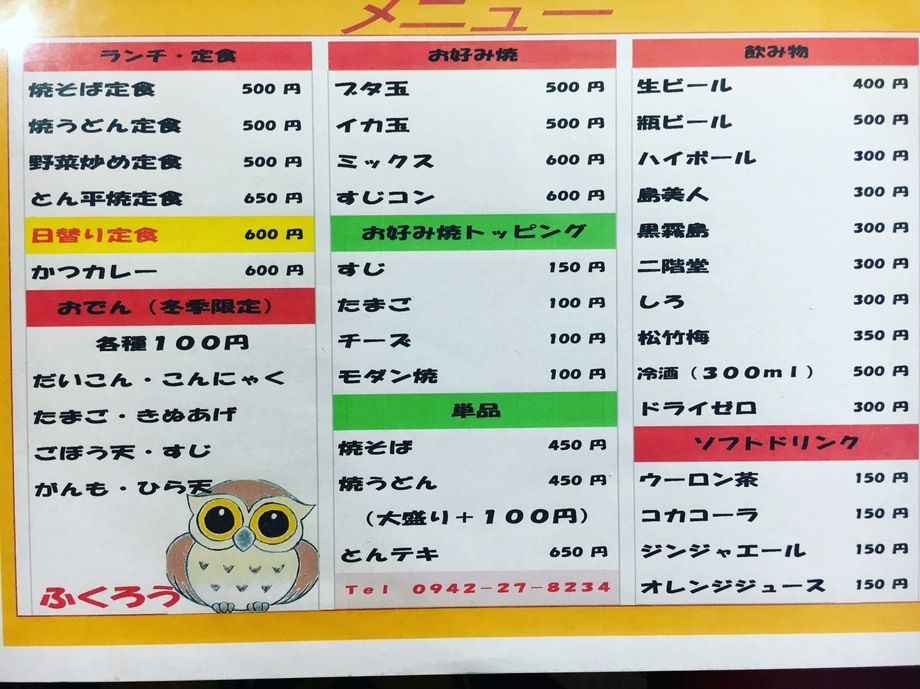 メニュー
ランチ・定食
焼そば定食 500 円
焼うどん定食 500 円
野菜炒め定食 500 円
とん平焼定食 650 円
日替り定食 600 円
かつカレー 600 円
おでん（冬季限定）
各種１００円
だいこん・こんにゃく
たまご・きぬあげ
ごぼう天・すじ
がんも・ひら天
ふくろう
お好み焼
ブタ玉 500 円
イカ玉 500 円
ミックス 600 円
すじコン 600 円
お好み焼トッピング
すじ 150 円
たまご 100 円
チーズ 100 円
モダン焼 100 円
単品
焼そば 450 円
焼うどん 450 円
（大盛り＋１００円）
とんテキ 650 円
Tel 0942-27-8234
飲み物
生ビール 400 円
瓶ビール 500 円
ハイボール 300 円
島美人 300 円
黒霧島 300 円
二階堂 300 円
しろ 300 円
松竹梅 350 円
冷酒（３００ｍｌ） 500 円
ドライゼロ 300 円
ソフトドリンク
ウーロン茶 150 円
コカコーラ 150 円
ジンジャエール 150 円
オレンジジュース 150 円